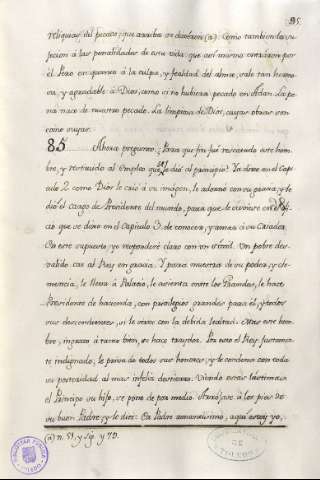 95.
reliquias del pecado, que arriba se dixeron (a). Como tambien la su-
jecion à las penalidades de esta vida, que asi mismo contraxeron por
él. Pero en quanto à la culpa, y fealdad del alma, sale tan hermo-
sa, y agradable à Dios, como si no hubiera pecado en Adan. La pe-
na nace de nuestro pecado. La limpieza de Dios,
85. Ahora pregunto: Para que fin fué rescatado este hom-
bre, y restituido al Empleo que se le dió al principio? Ya dixe en el Capi-
tulo 2 como Dios le crió à su imagen, le adornó con su gracia, y le
dió el cargo de Presidente del mundo, para que le sirviere en el
cio que se dixo en el Capitulo 3. de conocer, y amar à su Criador.
En este supuesto, yo responderé claro con un simil. Un pobre des-
valido cae al Rey en gracia. Y para muestra de su poder, y cle-
mencia, le lleva à Palacio, le asienta entre los Grandes, le hace
Presidente de hacienda, con privilegios grandes para él, y todos
sus descendientes, si le sirve con la debida lealtad. Mas este hom-
bre, ingrato à tanto bien, se hace traydor. Por esto el Rey, justamen-
te indignado, le priva de todos sus honores, y le condena con toda
su posteridad al mas infeliz destierro. Viendo esta lastima
el Principe su hijo, se pone de por medio. Arrojase à los pies de
su buen Padre, y le dice: Ea Padre amantisimo, aqui estoy yo,
(a) n. 51, y sig. y 79.
TOLEDO
DE TOLEDO